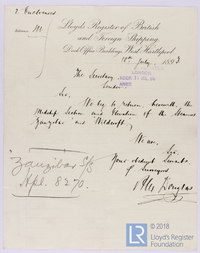 2 Enclosures
Lloyd's Register of British
and Foreign Shipping.
Dock Office Buildings, West Hartlepool
11th July 1893
The Secretary
London
LONDON
Sir,
We beg to return, herewith, the
Midship Section and Elevation of the Steamers
"Zanzibar" and
We are,
Sir,
Your obedient Servants
Zanzibar S/S
Hpl. 8270.
© 2018
Lloyd's Register
Foundation